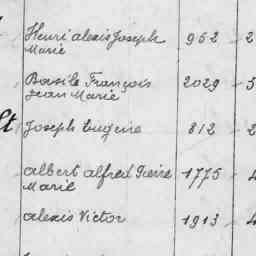 Henri alexis Joseph 952 2
Marie
Basile François 2029 5
Jean Marie
St Joseph Eugène 812 2
albert alfred Pierre 1775 4
Marie
alexis Victor 1913 4